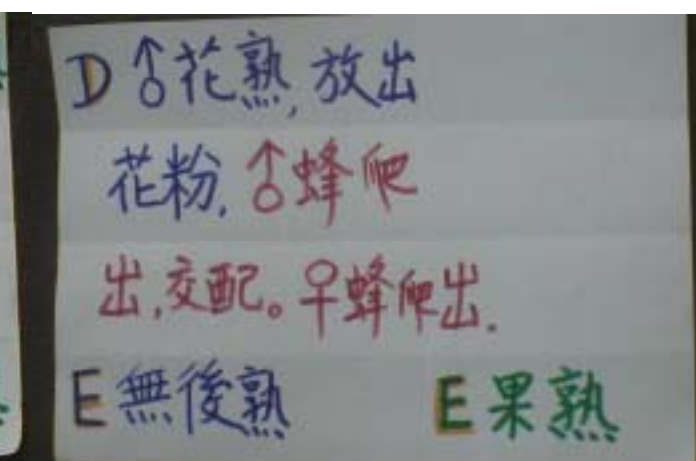 D ♂花熟,放出
花粉,♂蜂爬
出,交配。♀蜂爬出.
E無後熟 E果熟